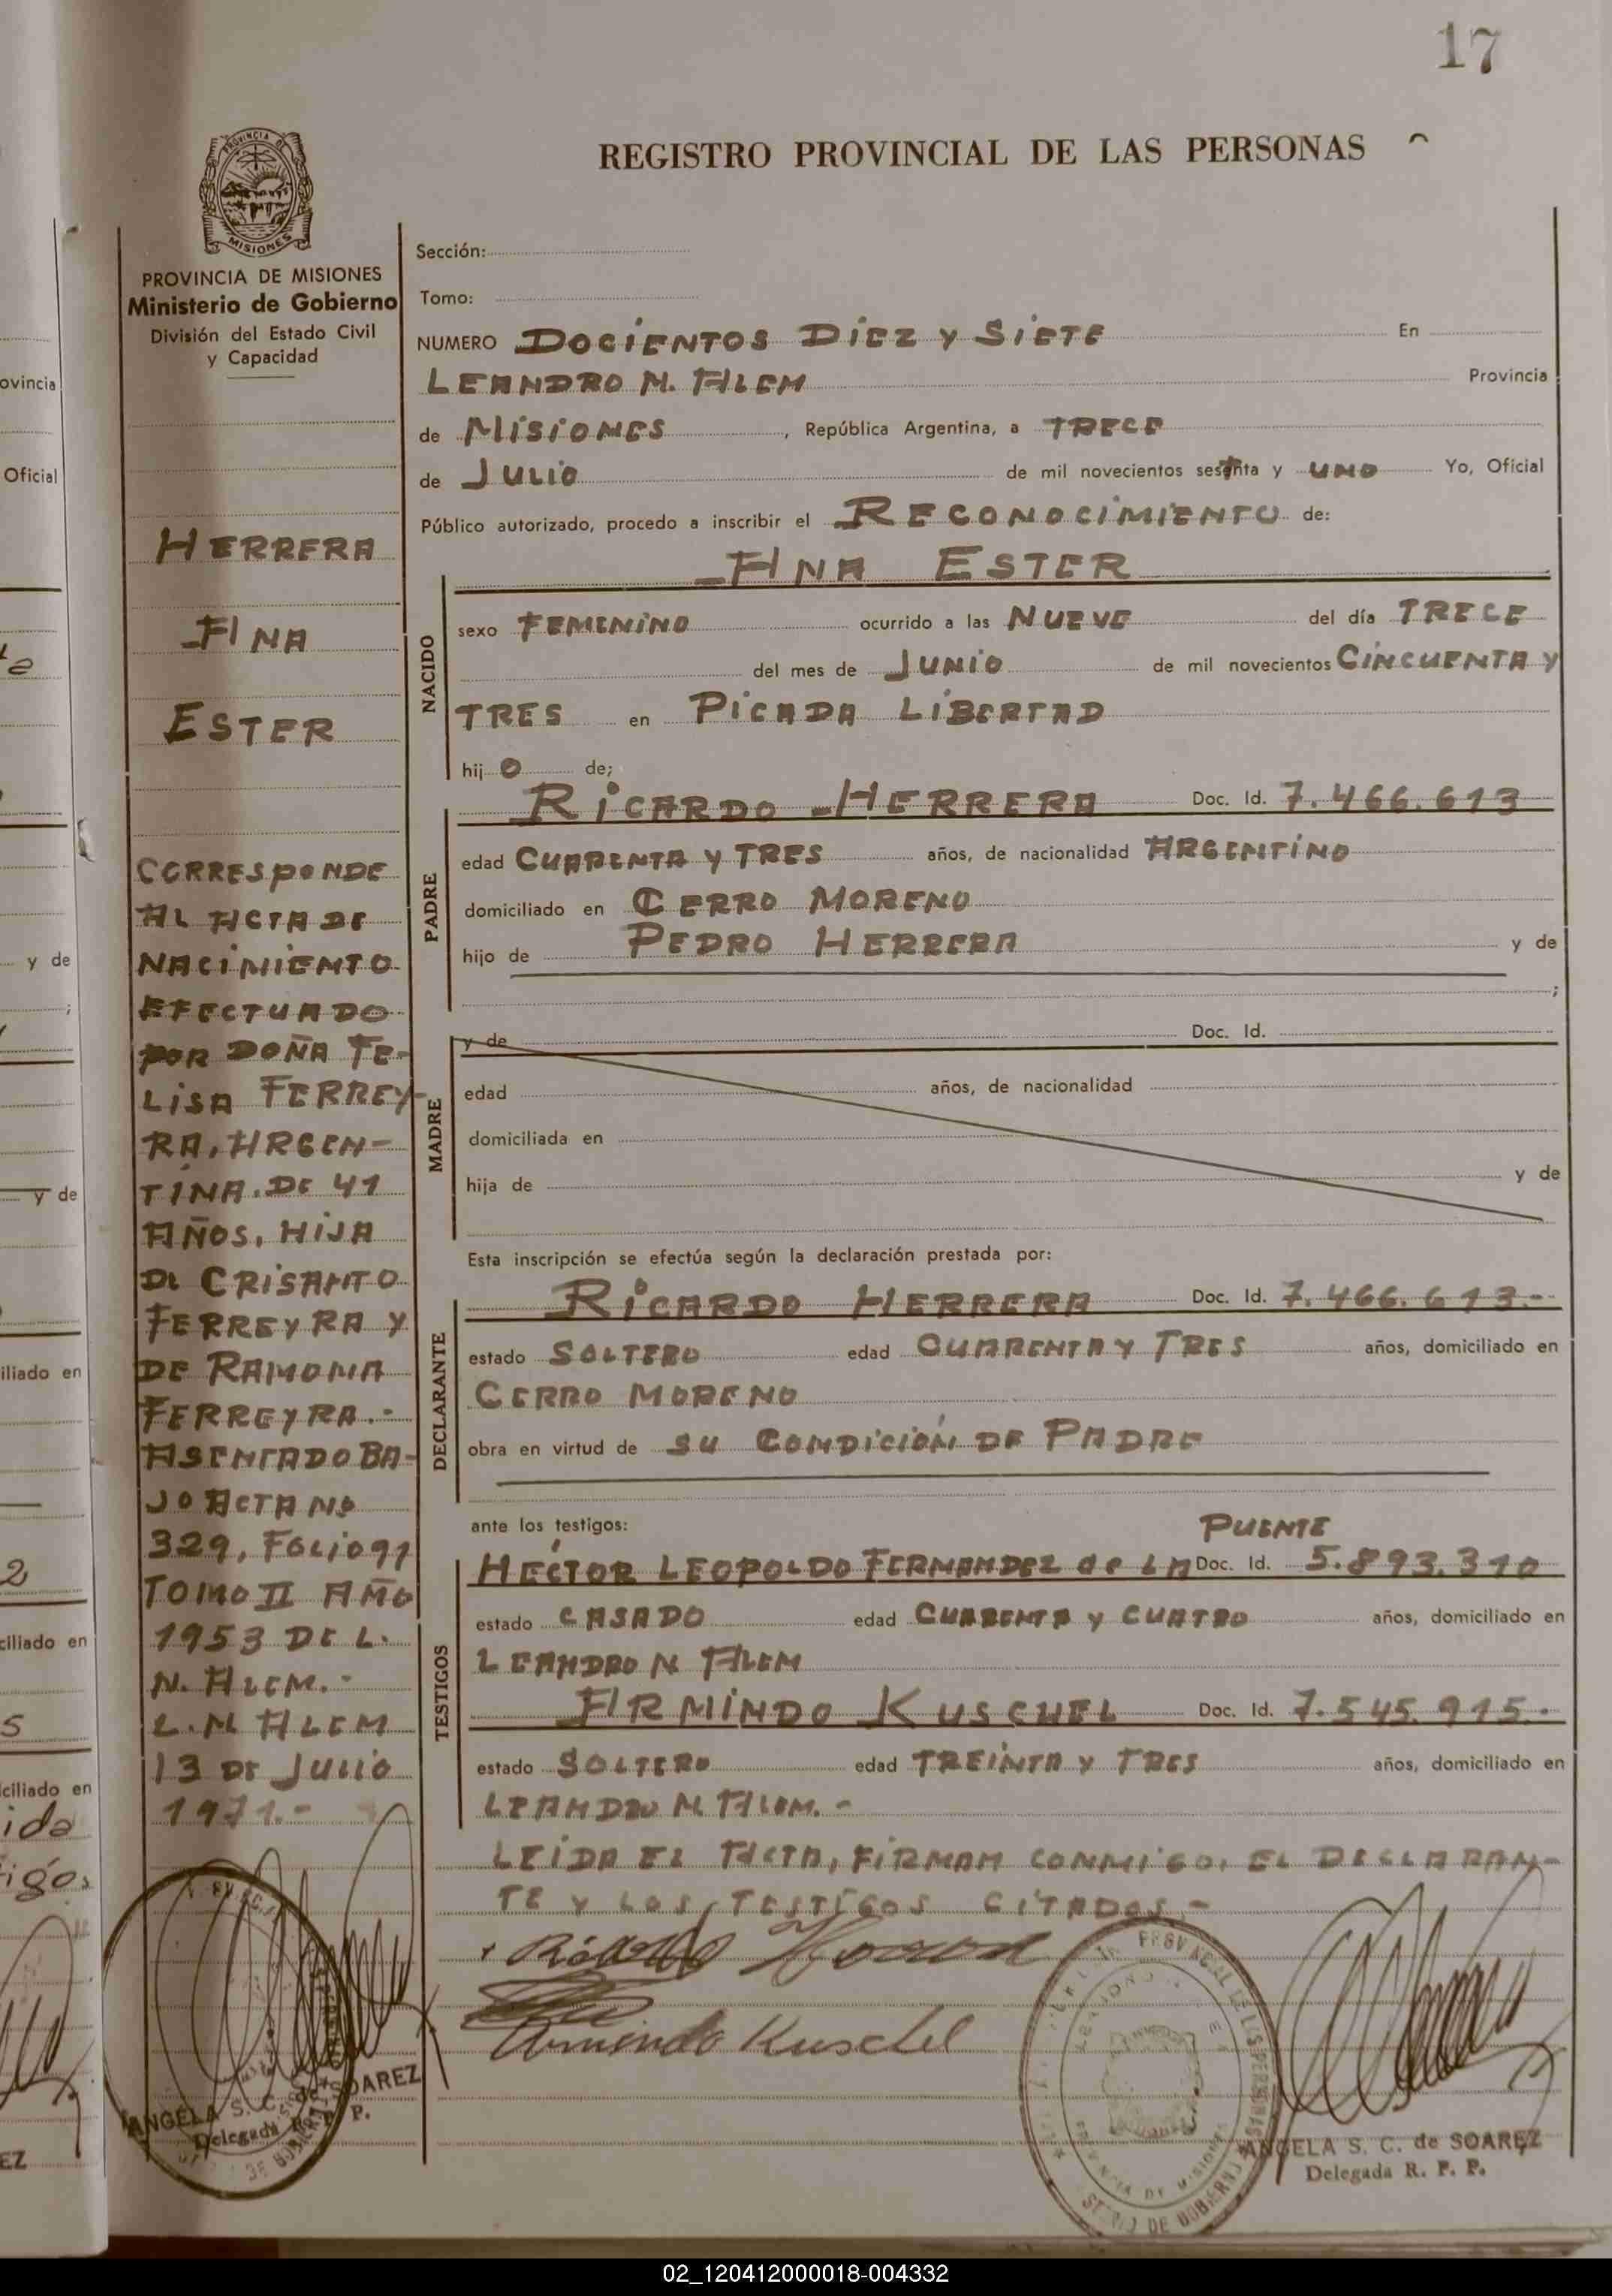 17
REGISTRO PROVINCIAL DE LAS PERSONAS
PROVINCIA
MISIONES
PROVINCIA DE MISIONES
Ministerio de Gobierno
División del Estado Civil
y Capacidad
HERRERA
ANA
ESTER
CORRESPONDE
AL ACTA DE
NACIMIENTO
EFECTUADO
POR DOÑA FE-
LISA FERREY-
RA, ARGEN-
TINA. DE 41
AÑOS, HIJA
DE CRISANTO
FERREYRA Y
DE RAMONA
FERREYRA.-
ASENTADO BA-
JO ACTA Nº
329, FOLIO 91
TOMO II AÑO
1953 DE L.
N. ALEM.-
L.N ALEM
13 DE JULIO
1971.-
ANGELA S. C. de SOAREZ
Delegada R. P. P.
Sección:
Tomo:
NUMERO DOCIENTOS DIEZ Y SIETE En
LEANDRO N. ALEM Provincia
de MISIONES, República Argentina, a TRECE
de JULIO de mil novecientos setenta y UNO Yo, Oficial
Público autorizado, procedo a inscribir el RECONOCIMIENTO de:
ANA ESTER
NACIDO
sexo FEMENINO ocurrido a las NUEVE del día TRECE
del mes de JUNIO de mil novecientos CINCUENTA Y
TRES en PICADA LIBERTAD
hijo de;
PADRE
RICARDO HERRERA Doc. Id. 7.466.613
edad CUARENTA Y TRES años, de nacionalidad ARGENTINO
domiciliado en CERRO MORENO
hijo de PEDRO HERRERA y de
;
MADRE
y de Doc. Id.
edad años, de nacionalidad
domiciliada en
hija de y de
Esta inscripción se efectúa según la declaración prestada por:
DECLARANTE
RICARDO HERRERA Doc. Id. 7.466.613.-
estado SOLTERO edad CUARENTA Y TRES años, domiciliado en
CERRO MORENO
obra en virtud de SU CONDICIÓN DE PADRE
ante los testigos: PUENTE
TESTIGOS
HECTOR LEOPOLDO FERNANDEZ de LA Doc. Id. 5.893.310
estado CASADO edad CUARENTA Y CUATRO años, domiciliado en
LEANDRO N ALEM
ARMINDO KUSCHEL Doc. Id. 7.545.915.-
estado SOLTERO edad TREINTA Y TRES años, domiciliado en
LEANDRO N. ALEM.-
LEIDA EL ACTA, FIRMAN CONMIGO, EL DECLARAN-
TE Y LOS TESTIGOS CITADOS.-
Armindo Kuschel
PROVINCIA DE MISIONES
ANGELA S. C. de SOAREZ
Delegada R. P. P.
ovincia
Oficial
y de
;
y de
iliado en
2
ciliado en
5
ciliado en
ida
igos
EZ
02_120412000018-004332